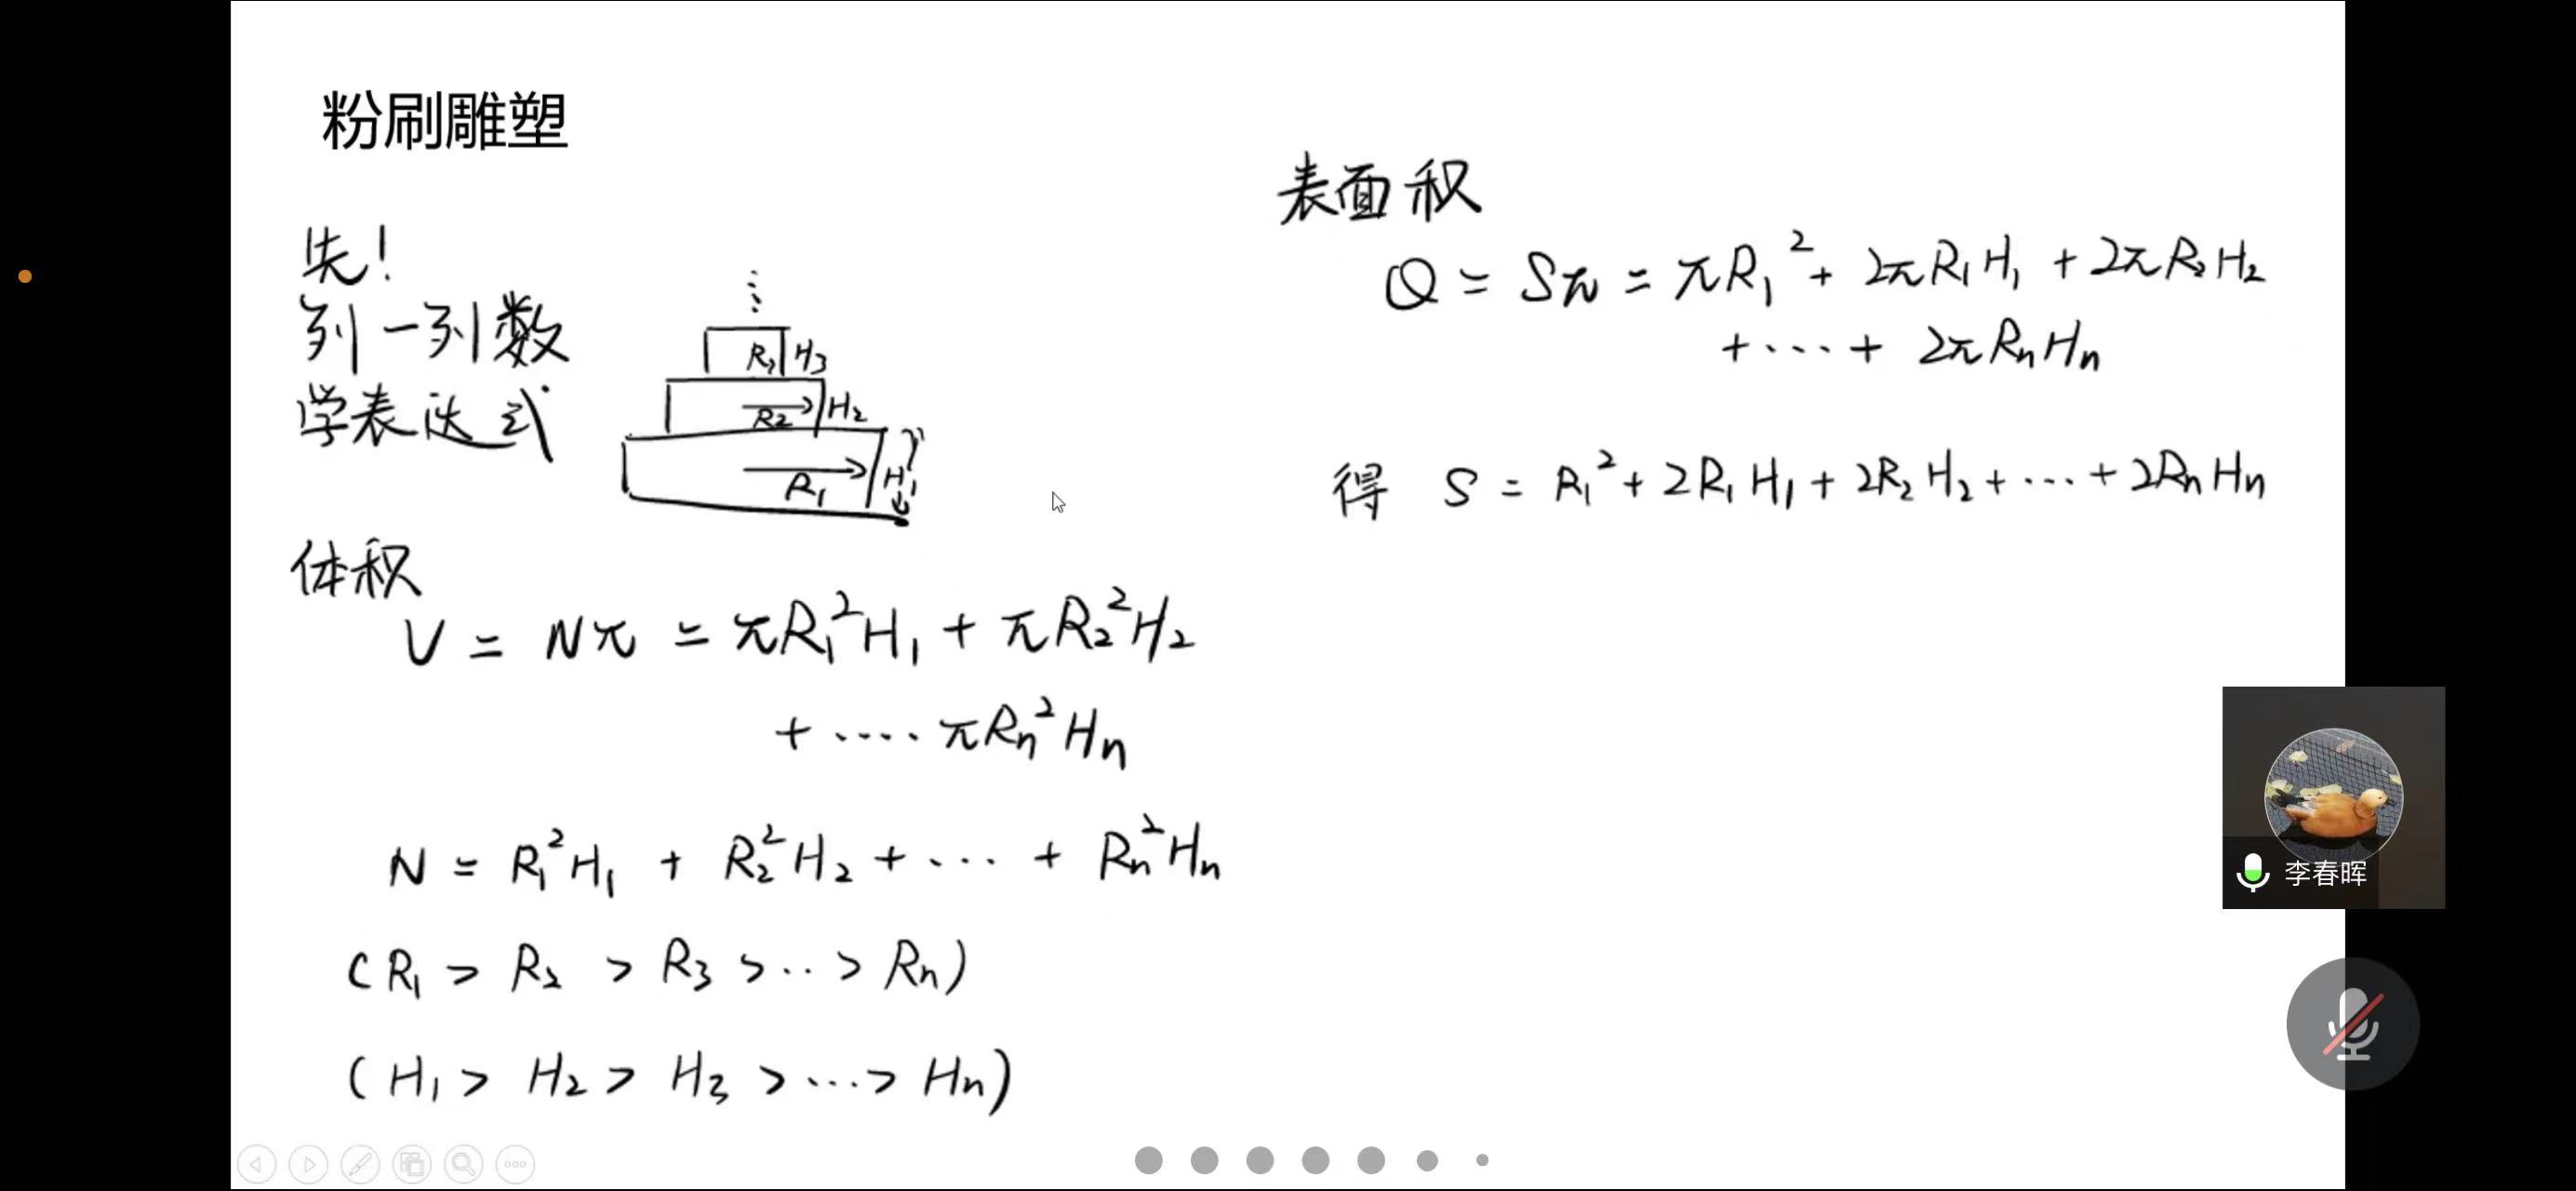 粉刷雕塑
先!
列一列数
学表达式
⋮
R₃ H₃
R₂ H₂
R₁ H₁
体积
V = Nπ = πR₁²H₁ + πR₂²H₂
+ ···· πRn²Hn
N = R₁²H₁ + R₂²H₂ + ··· + Rn²Hn
(R₁ > R₂ > R₃ > ·· > Rn)
(H₁ > H₂ > H₃ > ··· > Hn)
表面积
Q = Sπ = πR₁² + 2πR₁H₁ + 2πR₂H₂
+ ···· + 2πRnHn
得 S = R₁² + 2R₁H₁ + 2R₂H₂ + ··· + 2RnHn
李春晖